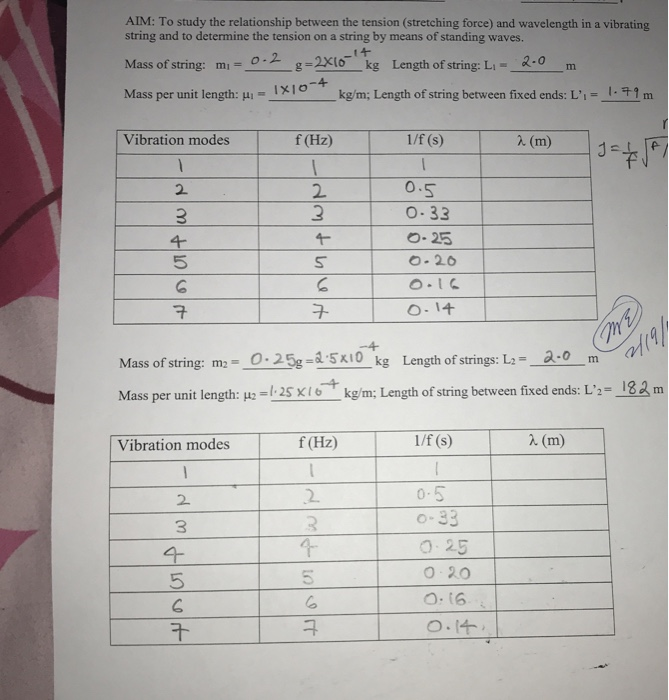 AIM: To study the relationship between the tension (stretching force) and wavelength in a vibrating
string and to determine the tension on a string by means of standing waves.
Mass of string: m₁ = 0.2 g = 2×10⁻¹⁴ kg Length of string: L₁ = 2.0 m
Mass per unit length: μ₁ = 1×10⁻⁴ kg/m; Length of string between fixed ends: L'₁ = 1.79 m
Vibration modes f (Hz) 1/f (s) λ (m)
1 1 1
2 2 0.5
3 3 0.33
4 4 0.25
5 5 0.20
6 6 0.16
7 7 0.14
Mass of string: m₂ = 0.25g = 2.5×10⁻⁴ kg Length of strings: L₂ = 2.0 m
Mass per unit length: μ₂ = 1.25×10⁻⁴ kg/m; Length of string between fixed ends: L'₂ = 182 m
Vibration modes f (Hz) 1/f (s) λ (m)
1 1 1
2 2 0.5
3 3 0.33
4 4 0.25
5 5 0.20
6 6 0.16
7 7 0.14